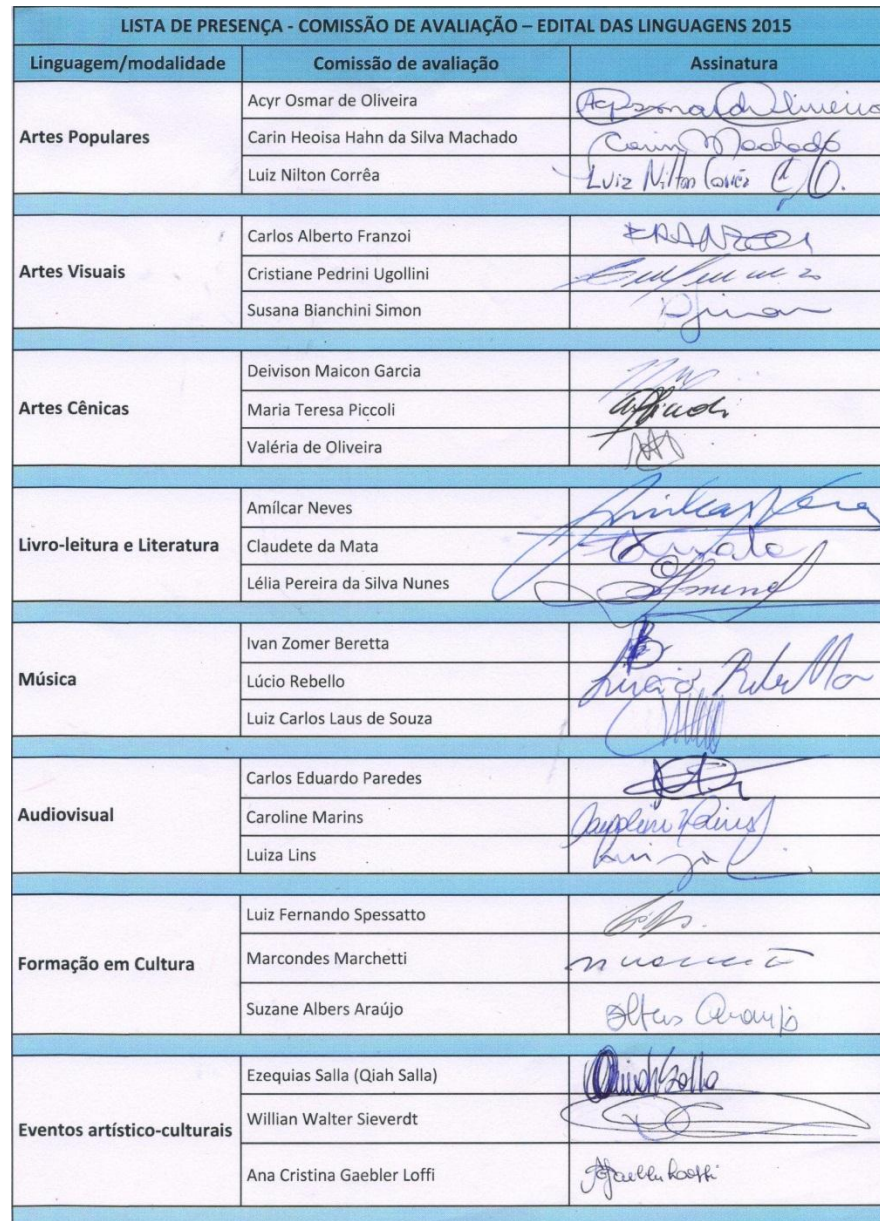 LISTA DE PRESENÇA - COMISSÃO DE AVALIAÇÃO – EDITAL DAS LINGUAGENS 2015
Linguagem/modalidade Comissão de avaliação Assinatura
Artes Populares
Acyr Osmar de Oliveira
Carin Heoisa Hahn da Silva Machado Carin Machado
Luiz Nilton Corrêa Luiz Nilton Corrêa
Artes Visuais
Carlos Alberto Franzoi FRANZOI
Cristiane Pedrini Ugollini
Susana Bianchini Simon
Artes Cênicas
Deivison Maicon Garcia
Maria Teresa Piccoli
Valéria de Oliveira
Livro-leitura e Literatura
Amílcar Neves Amilcar Neves
Claudete da Mata
Lélia Pereira da Silva Nunes
Música
Ivan Zomer Beretta
Lúcio Rebello Lúcio Rebello
Luiz Carlos Laus de Souza
Audiovisual
Carlos Eduardo Paredes
Caroline Marins
Luiza Lins
Formação em Cultura
Luiz Fernando Spessatto
Marcondes Marchetti
Suzane Albers Araújo Albers Araujo
Eventos artístico-culturais
Ezequias Salla (Qiah Salla) Qiah Salla
Willian Walter Sieverdt
Ana Cristina Gaebler Loffi